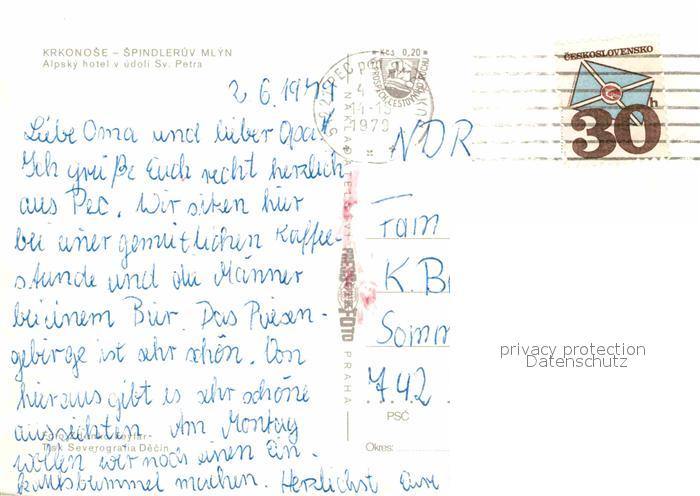 KRKONOŠE – ŠPINDLERŮV MLÝN
Alpský hotel v údolí Sv. Petra
Kčs 0,20
ČESKOSLOVENSKO
30 h
PEC POD
4
14-15
1979
2 6. 1979
Liebe Oma und lieber Opa!
Ich grüße Euch recht herzlich
aus Pec. Wir sitzen hier
bei einer gemütlichen Kaffee-
stunde und die Männer
bei einem Bier. Das Riesen-
gebirge ist sehr schön. Von
hieraus gibt es sehr schöne
aussichten. Am Montag
wollen wir noch einen Ein-
kaufsbummel machen. Herzlichst Eure
NDR
Fam
K. B
Somm
742
PSČ
Okres:
PRESSFOTO
PRAHA
Tisk Severografia Děčín
privacy protection
Datenschutz